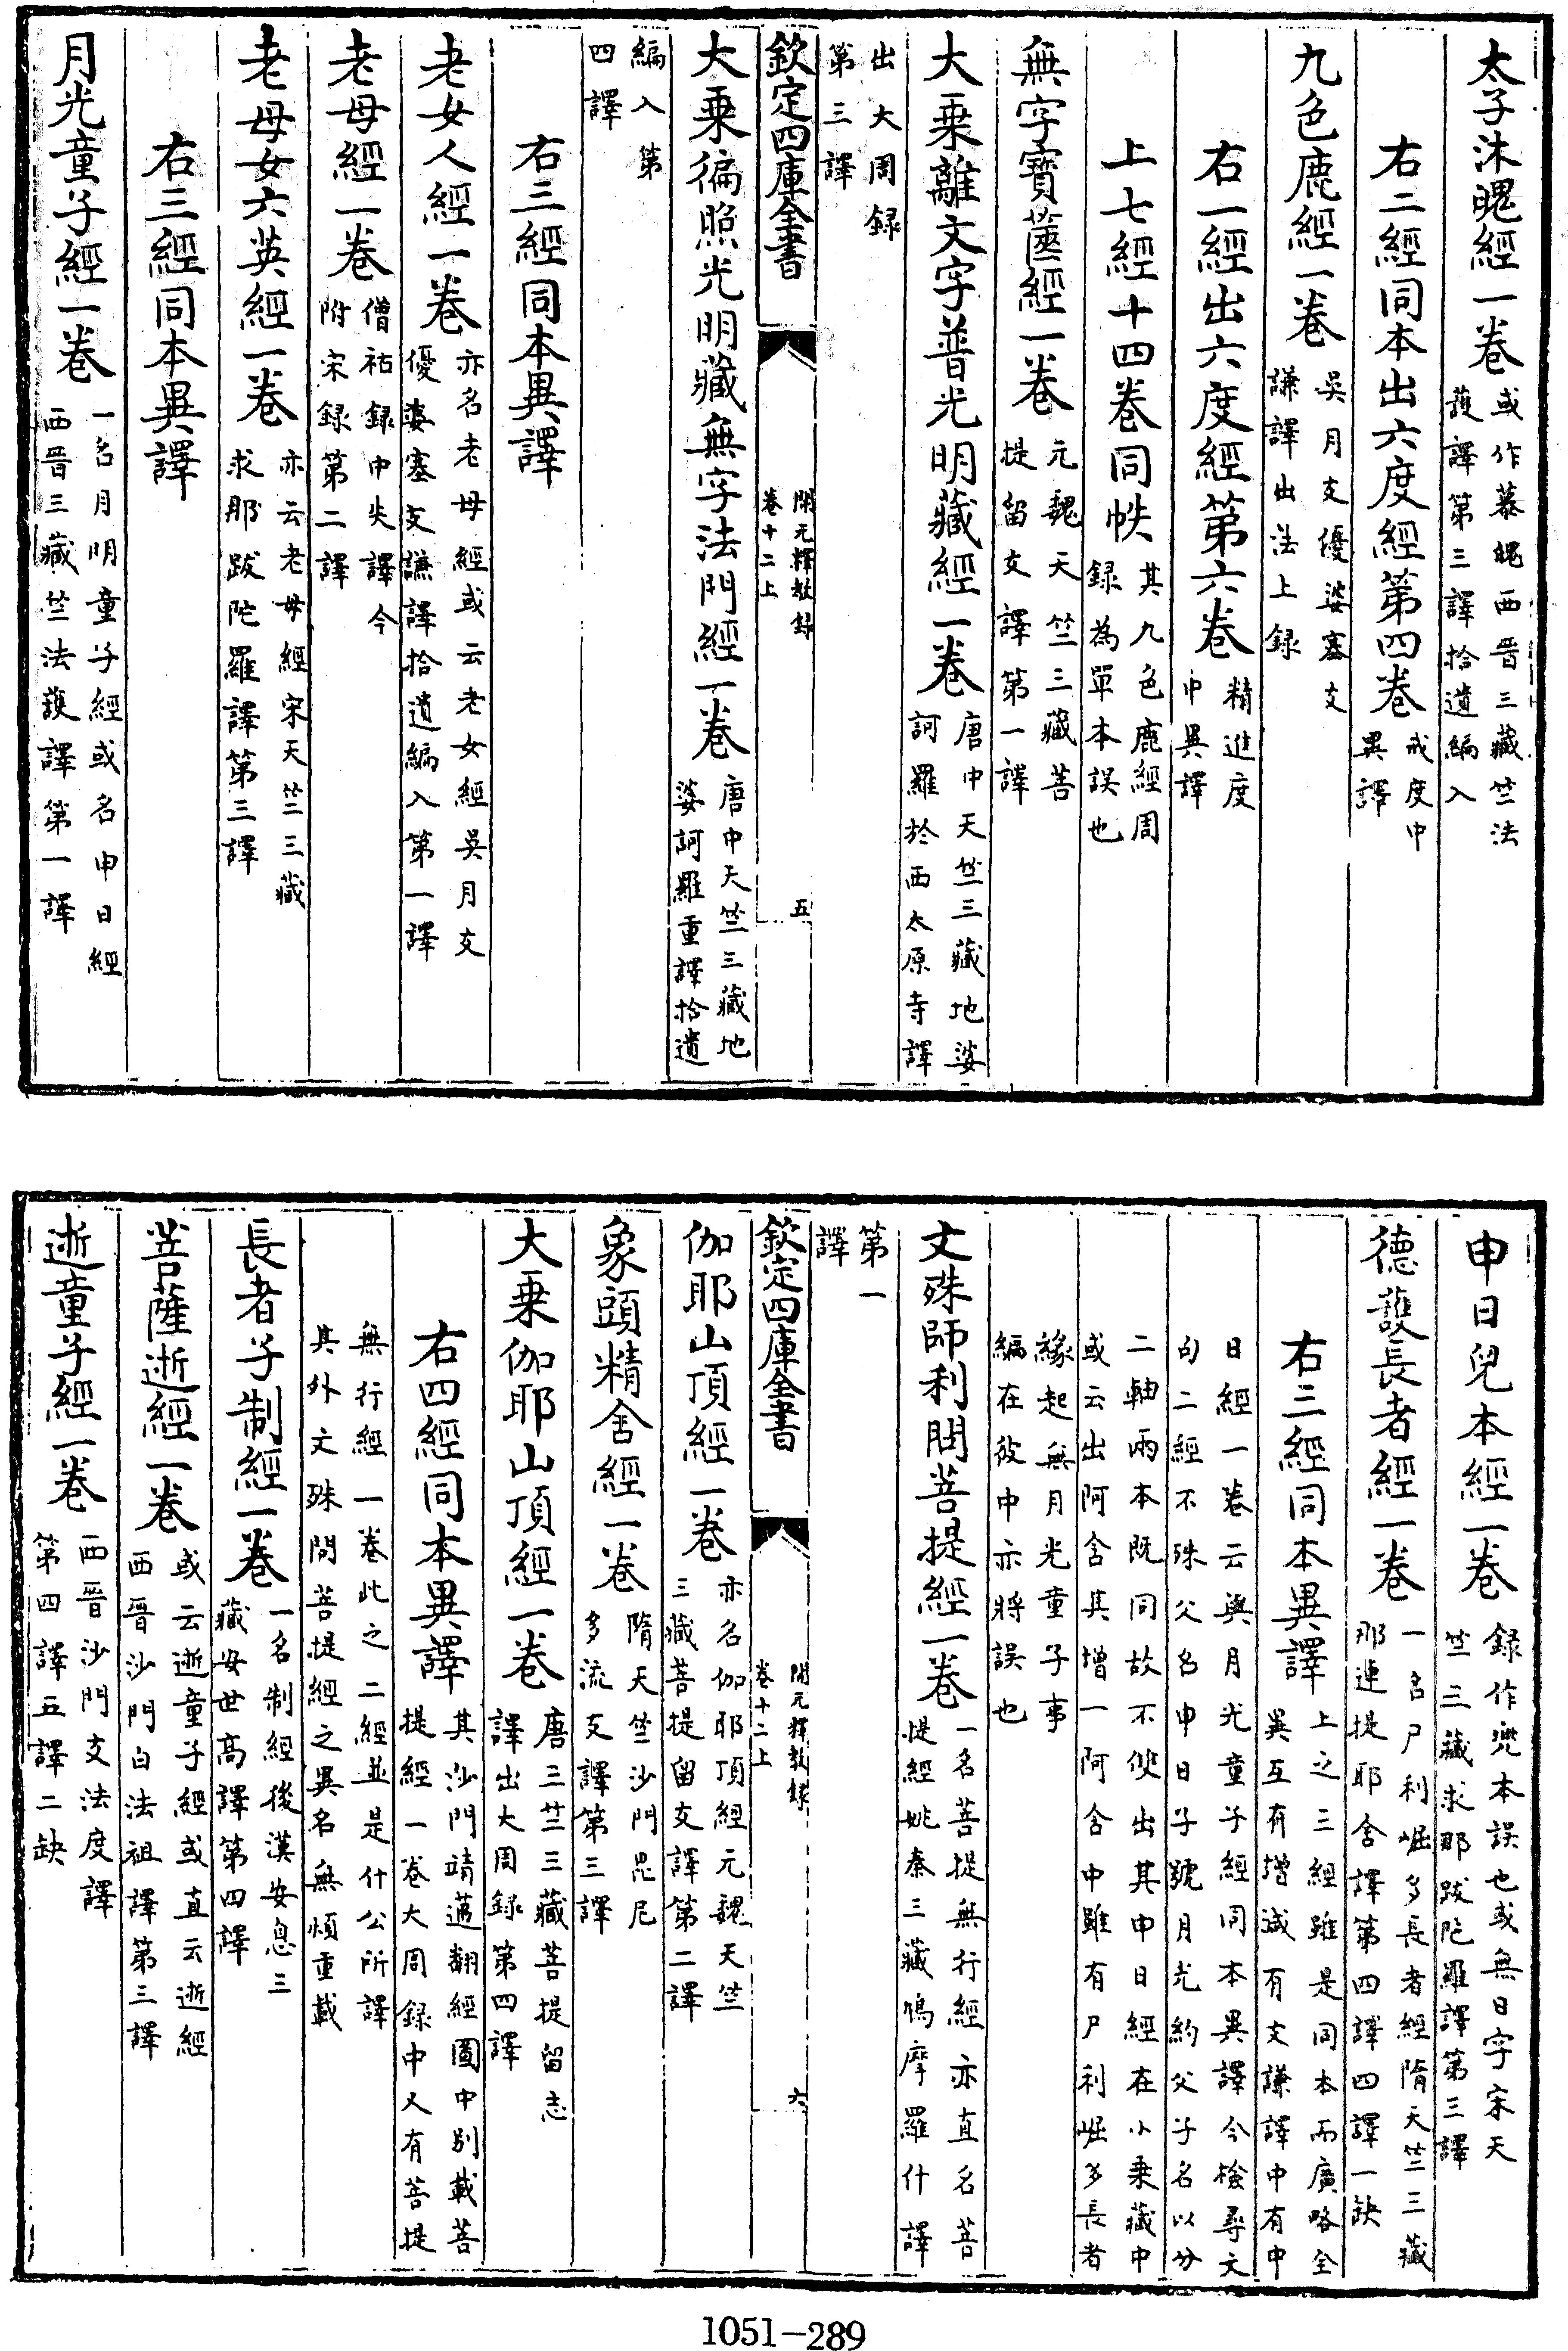 太子沐魄經一卷或作慕魄西晉三藏竺法護譯第三譯拾遺編入
右二經同本出六度經第四卷戒度中異譯
九色鹿經一卷吳月支優婆塞支謙譯出法上録
右一經出六度經第六卷精進度中異譯
上七經十四卷同帙其九色鹿經周録為單本誤也
無字寶篋經一卷元魏天竺三藏菩提留支譯第一譯
大乘離文字普光明藏經一卷唐中天竺三藏地婆訶羅於西太原寺譯
出大周録第三譯
欽定四庫全書
開元釋教録
卷十二上
五
大乘徧照光明藏無字法門經一卷唐中天竺三藏地婆訶羅重譯拾遺
編入第四譯
右三經同本異譯
老女人經一卷亦名老母經或云老女經吳月支優婆塞支謙譯拾遺編入第一譯
老母經一卷僧祐録中失譯今附宋録第二譯
老母女六英經一卷亦云老母經宋天竺三藏求那跋陀羅譯第三譯
右三經同本異譯
月光童子經一卷一名月明童子經或名申日經西晉三藏竺法護譯第一譯
申日兒本經一卷録作兜本誤也或無日字宋天竺三藏求那跋陀羅譯第三譯
德護長者經一卷一名尸利崛多長者經隋天竺三藏那連提耶舍譯第四譯四譯一缺
右三經同本異譯上之三經雖是同本而廣略全異互有増減有支謙譯中有中
日經一卷云與月光童子經同本異譯今檢尋文句二經不殊父名申日子號月光約父子名以分
二軸兩本既同故不使出其申日經在小乘藏中或云出阿含其増一阿含中雖有尸利崛多長者
緣起無月光童子事編在彼中亦將誤也
文殊師利問菩提經一卷一名菩提無行經亦直名菩提經姚秦三藏鳩摩羅什譯
第一譯
欽定四庫全書
開元釋教録
卷十二上
六
伽耶山頂經一卷亦名伽耶頂經元魏天竺三藏菩提留支譯第二譯
象頭精舍經一卷隋天竺沙門毘尼多流支譯第三譯
大乘伽耶山頂經一卷唐三竺三藏菩提留志譯出大周録第四譯
右四經同本異譯其沙門靖邁翻經圖中別載菩提經一卷大周録中又有菩提
無行經一卷此之二經並是什公所譯其外文殊問菩提經之異名無煩重載
長者子制經一卷一名制經後漢安息三藏安世高譯第四譯
菩薩逝經一卷或云逝童子經或直云逝經西晉沙門白法祖譯第三譯
逝童子經一卷西晉沙門支法度譯第四譯五譯二缺
1051-289